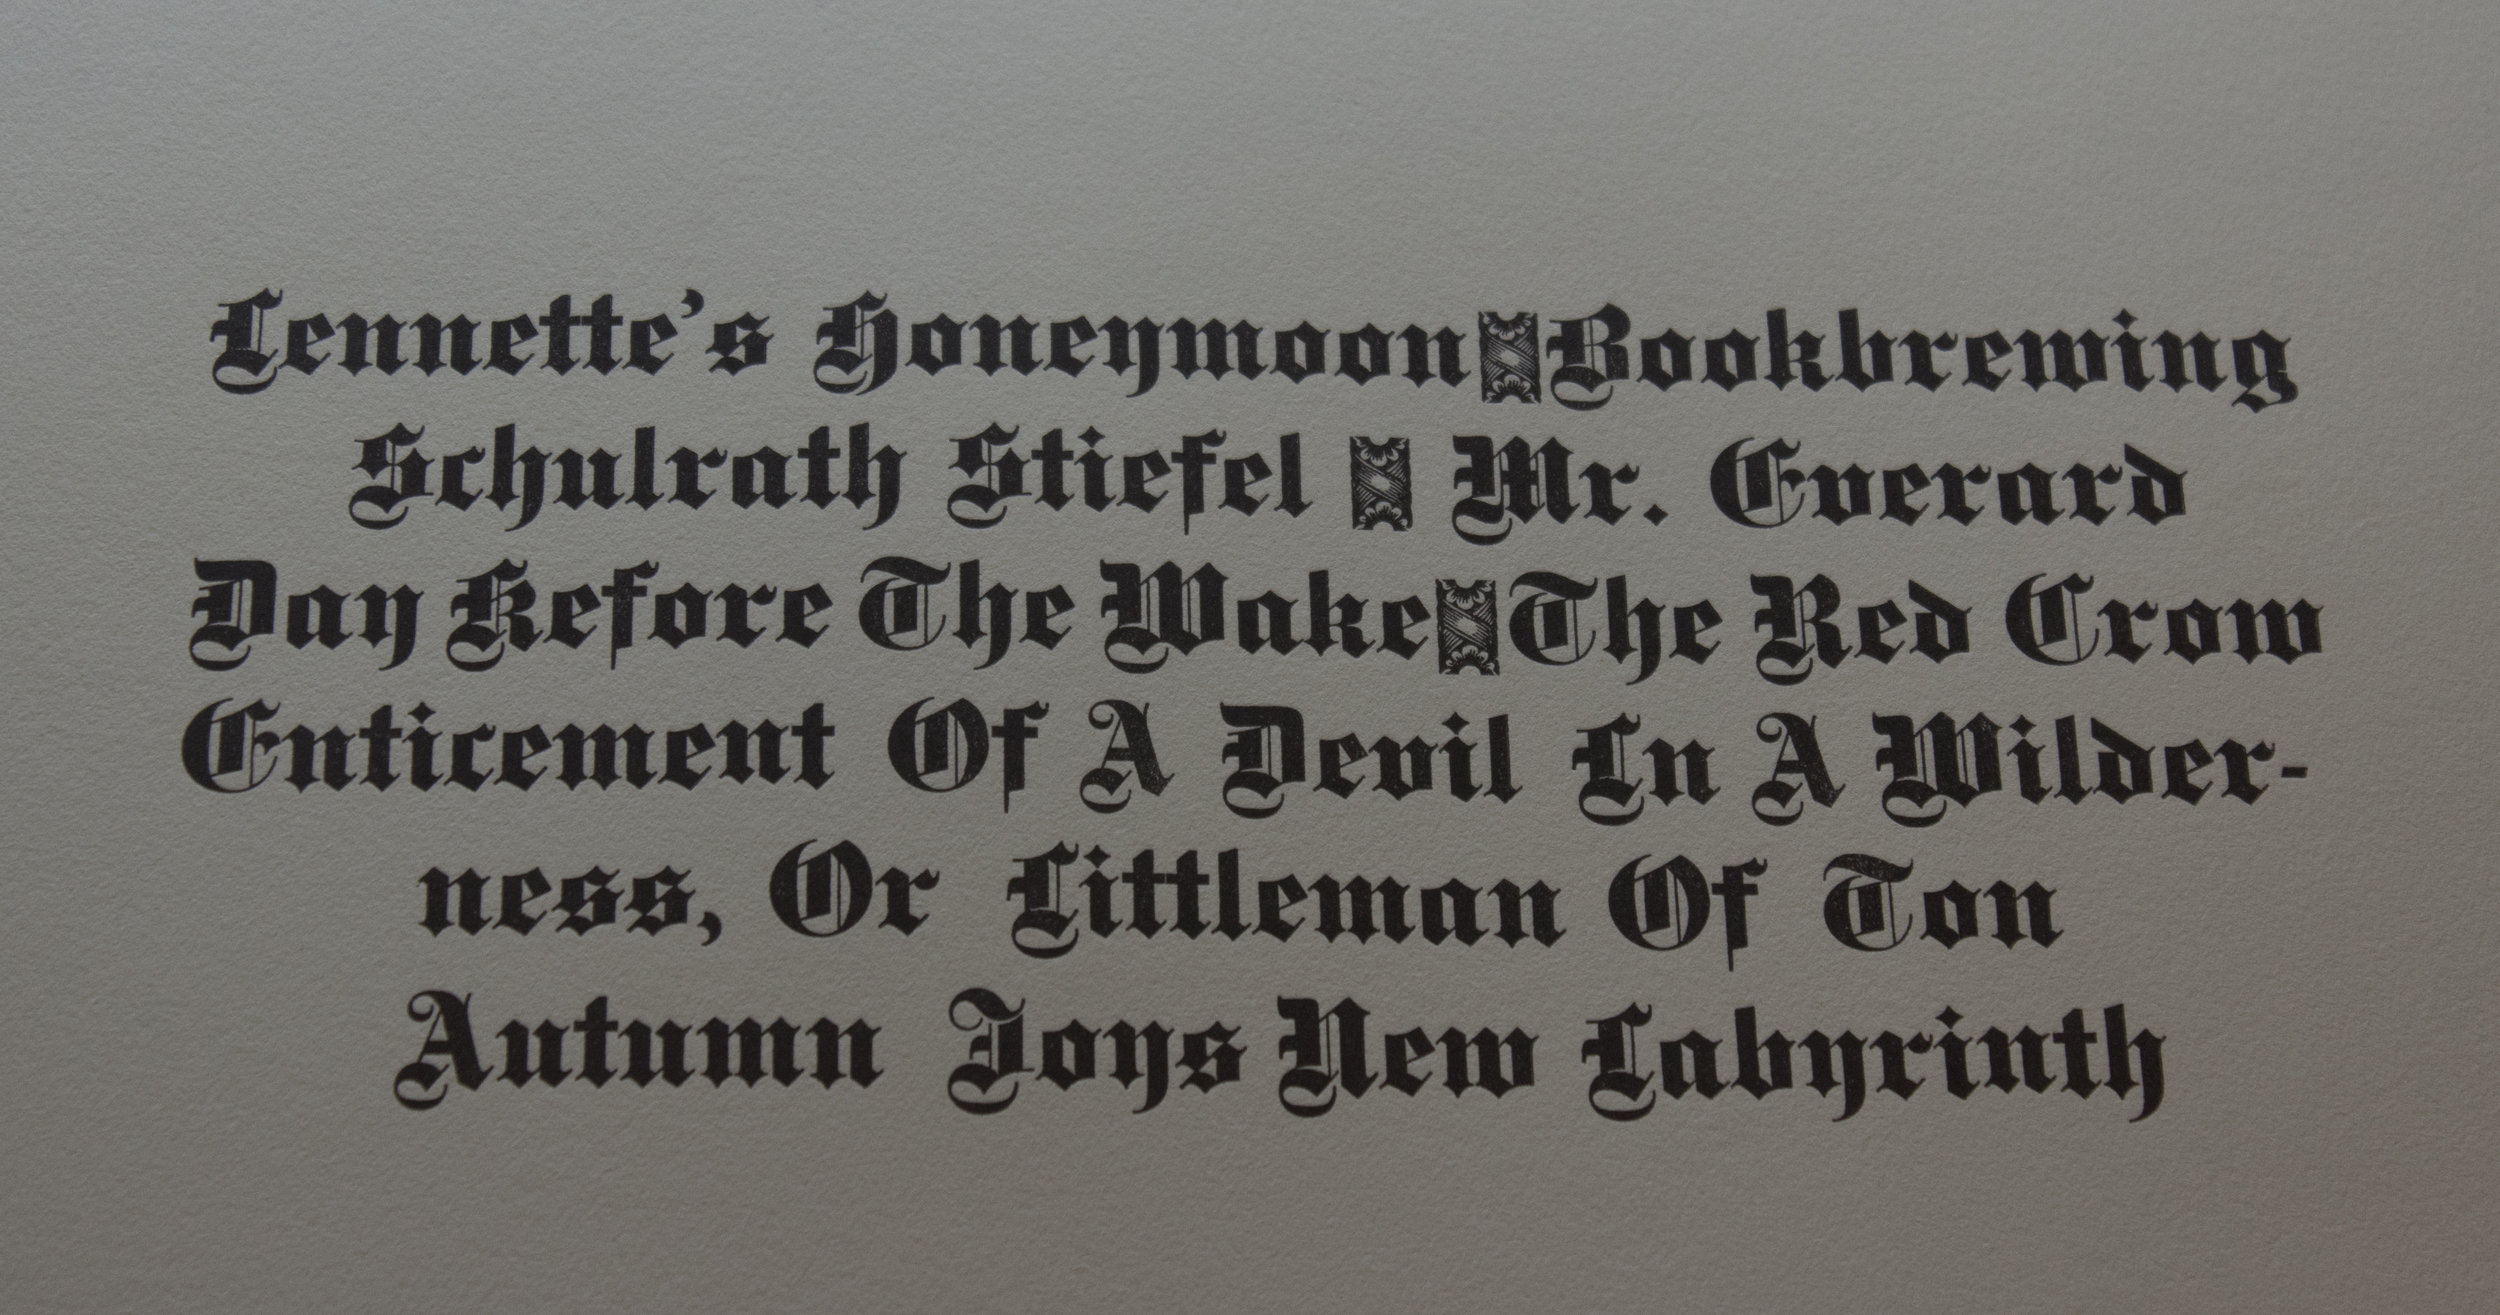 Lennette's Honeymoon Bookbrewing
Schulrath Stiefel Mr. Everard
Day Kefore The Wake The Red Crow
Enticement Of A Devil In A Wilder-
ness, Or Littleman Of Ton
Autumn Joys New Labyrinth